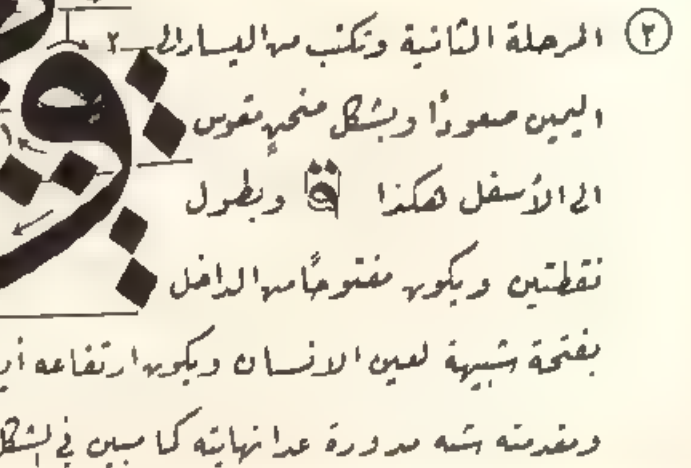 ٢ المرحلة الثانية وتكتب من اليسار الى
اليمين صعودًا وبشكل منحنٍ مقوس
الى الأسفل هكذا وبطول
نقطتين ويكون مفتوحًا من الداخل
بفتحة شبيهة لعين الانسان ويكون ارتفاعه
ومقدمته شبه مدورة عدا نهايته كما مبين في الشكل
٢